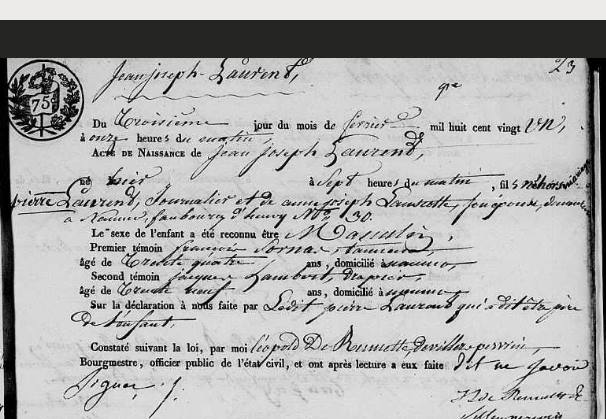 23
Jean joseph Laurent,
75
Du Troisième jour du mois de fevrier mil huit cent vingt un,
à onze heures du matin,
ACTE DE NAISSANCE de Jean Joseph Laurent,
né hier à Sept heures du matin, fils
pierre Laurent, Journalier et de anne joseph son épouse,
à faubourg d' henry N° 30.
Le sexe de l'enfant a été reconnu être Masculin,
Premier témoin françois
âgé de Trente quatre ans, domicilié à
Second témoin jacques Lambert, drapier,
âgé de Trente neuf ans, domicilié à
Sur la déclaration à nous faite par Ledit pierre Laurent qui a dit être père
de l'enfant,
Constaté suivant la loi, par moi Leopold De
Bourgmestre, officier public de l'état civil, et ont après lecture a eux faite dit ne Savoir
Signer ;